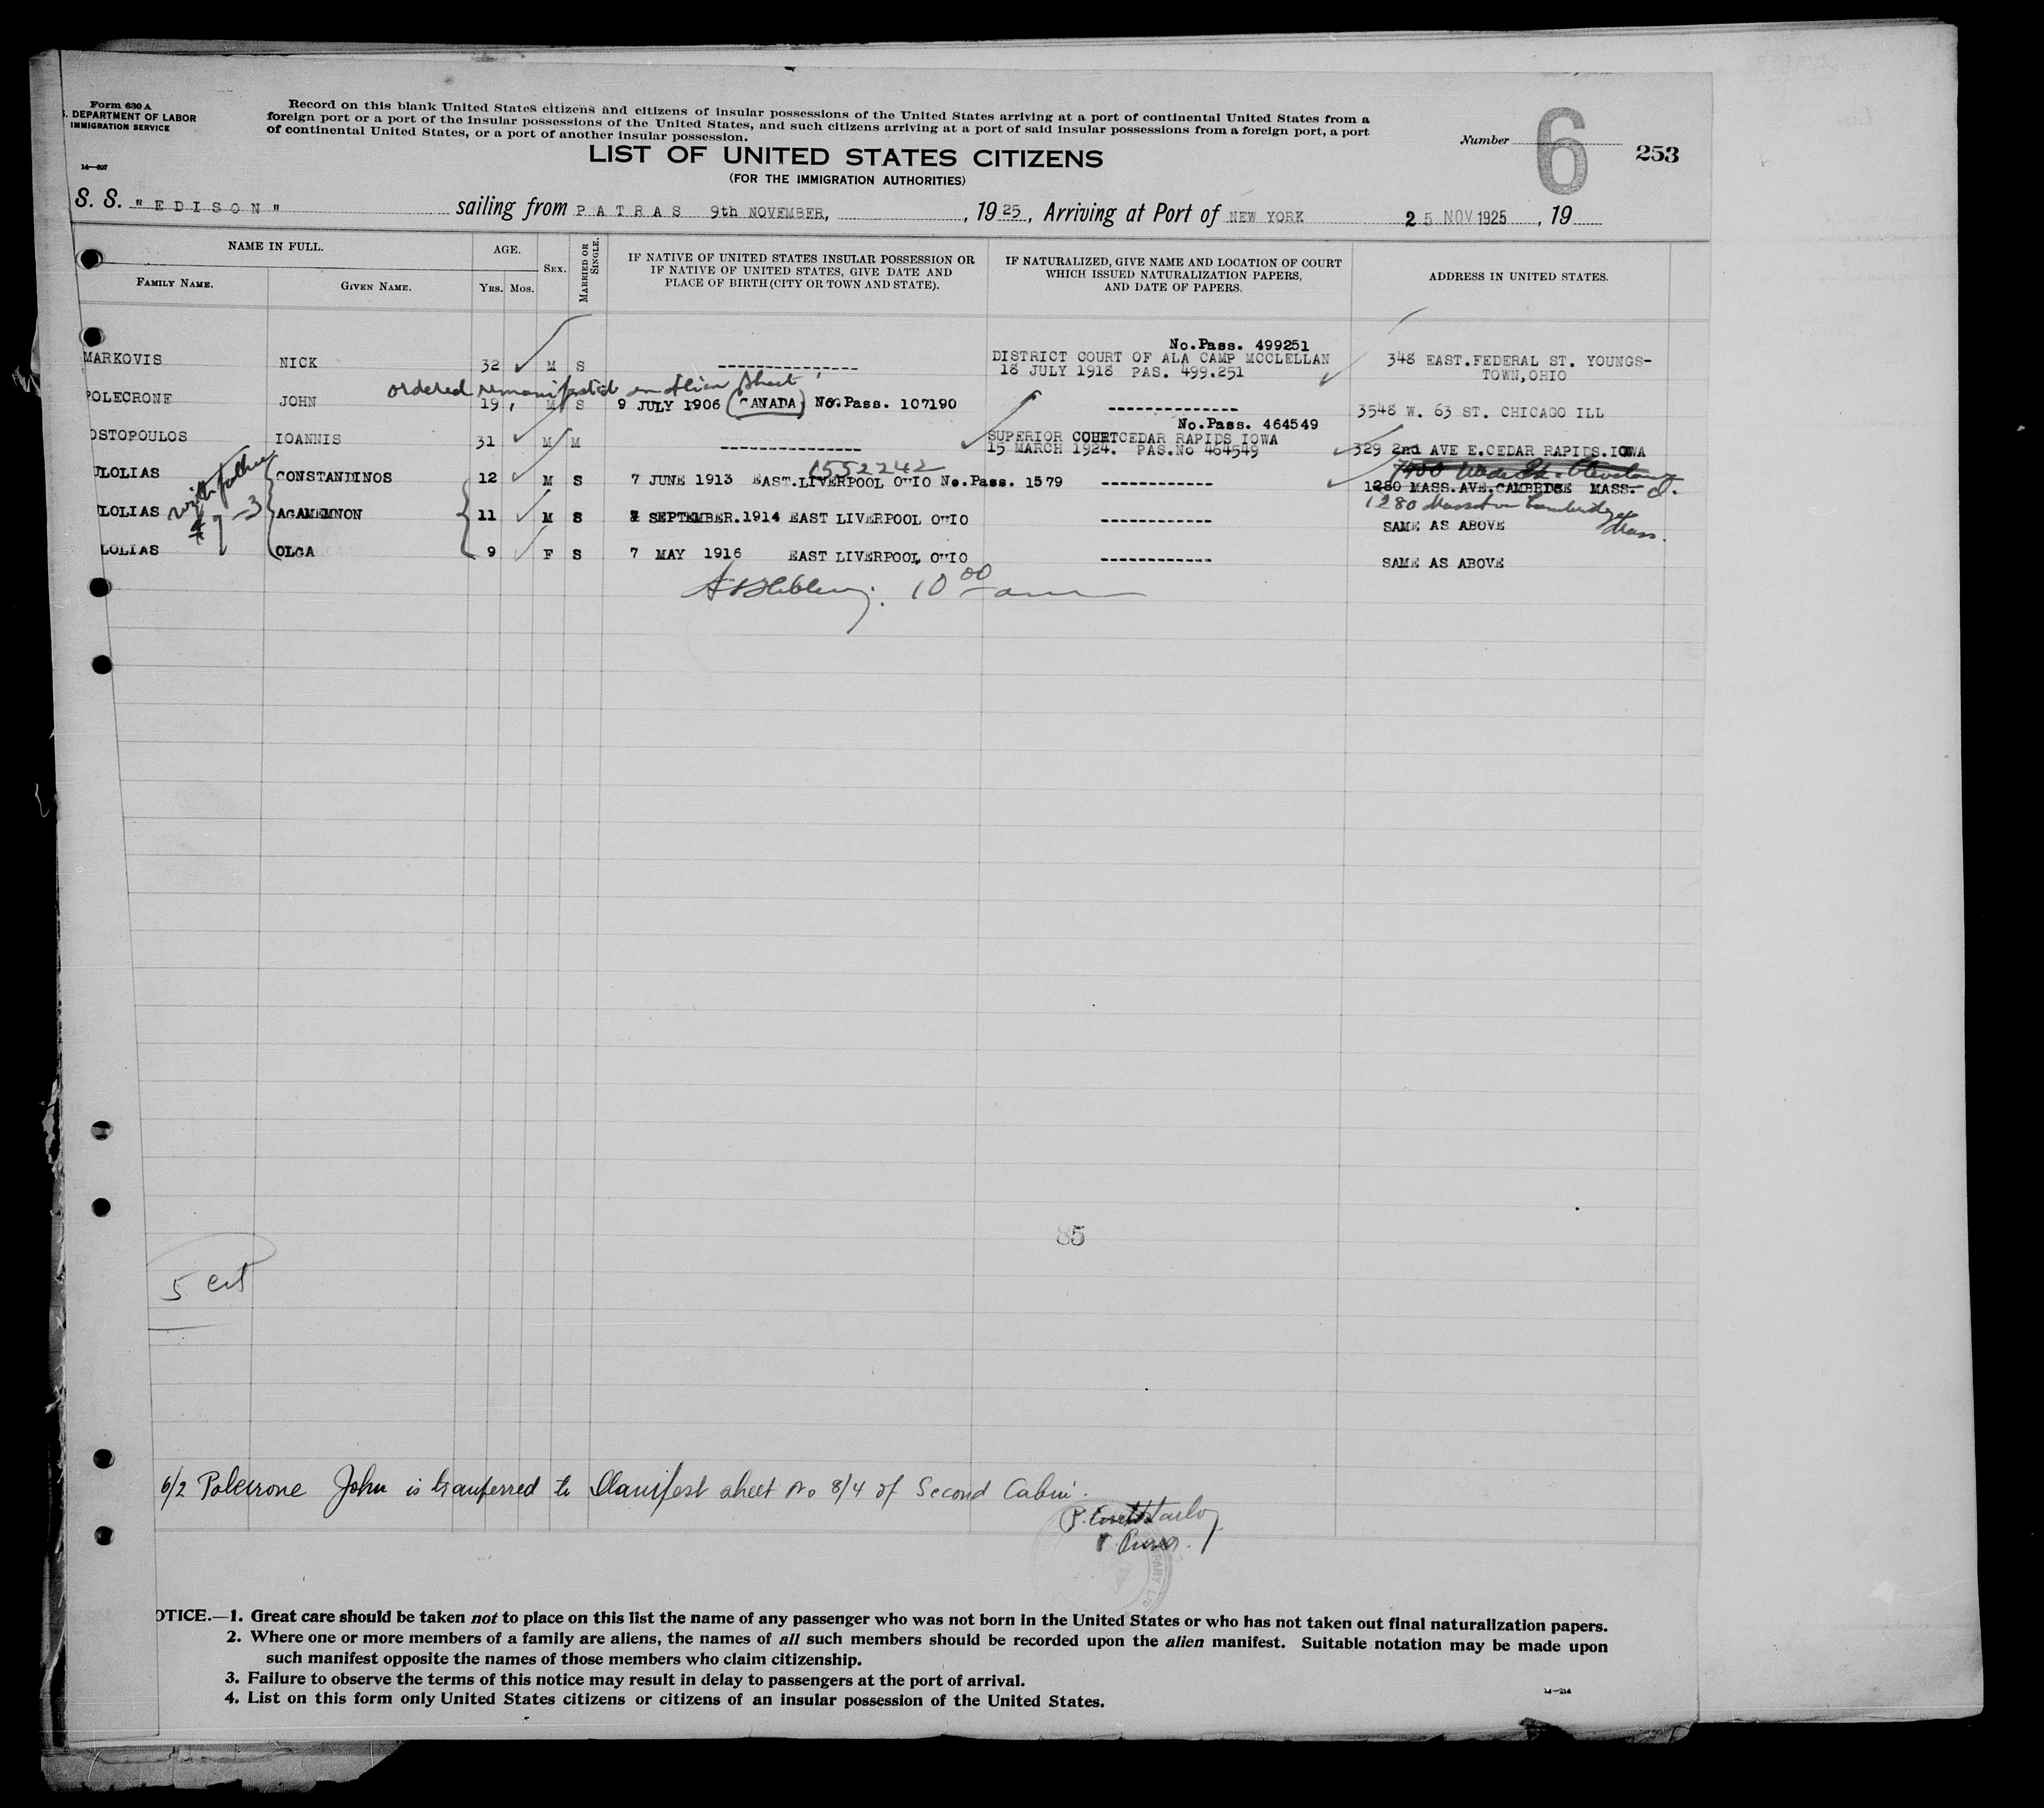 Form 630 A
. DEPARTMENT OF LABOR
IMMIGRATION SERVICE
14—607
Record on this blank United States citizens and citizens of insular possessions of the United States arriving at a port of continental United States from a
foreign port or a port of the insular possessions of the United States, and such citizens arriving at a port of said insular possessions from a foreign port, a port
of continental United States, or a port of another insular possession.
Number 6 253
LIST OF UNITED STATES CITIZENS
(FOR THE IMMIGRATION AUTHORITIES)
S. S. "EDISON" sailing from PATRAS 9th NOVEMBER, , 1925, Arriving at Port of NEW YORK 25 NOV 1925, 19
NAME IN FULL. AGE. SEX. MARRIED OR SINGLE. IF NATIVE OF UNITED STATES INSULAR POSSESSION OR IF NATIVE OF UNITED STATES, GIVE DATE AND PLACE OF BIRTH (CITY OR TOWN AND STATE). IF NATURALIZED, GIVE NAME AND LOCATION OF COURT WHICH ISSUED NATURALIZATION PAPERS, AND DATE OF PAPERS. ADDRESS IN UNITED STATES.
FAMILY NAME. GIVEN NAME. YRS. MOS.
No.Pass. 499251
MARKOVIS NICK 32 M S -------------- DISTRICT COURT OF ALA CAMP MCCLELLAN 348 EAST.FEDERAL ST. YOUNGS-
18 JULY 1918 PAS. 499.251 TOWN,OHIO
ordered remanifested on Alien sheet
POLECRONE JOHN 19 M S 9 JULY 1906 (CANADA) No.Pass. 107190 ------------- 3548 W. 63 ST. CHICAGO ILL
No.Pass. 464549
OSTOPOULOS IOANNIS 31 M M -------------- SUPERIOR COURT CEDAR RAPIDS IOWA 329 2nd AVE E.CEDAR RAPIDS.IOWA
15 MARCH 1924. PAS.No 464549
1552242
7400 Wade Pk. Cleveland O.
LOLIAS CONSTANDINOS 12 M S 7 JUNE 1913 EAST.LIVERPOOL OHIO No.Pass. 1579 ------------ 1280 MASS.AVE.CAMBRIDGE MASS.
with father
# 7-3
1280 Cambridge Mass.
LOLIAS AGAMEMNON 11 M S SEPTEMBER.1914 EAST LIVERPOOL OHIO ------------ SAME AS ABOVE
LOLIAS OLGA 9 F S 7 MAY 1916 EAST LIVERPOOL OHIO ------------ SAME AS ABOVE
10 00 am
85
5
6/2 Polecrone John is transferred to Manifest sheet No 8/4 of Second Cabin.
Purser.
OTICE.—1. Great care should be taken not to place on this list the name of any passenger who was not born in the United States or who has not taken out final naturalization papers.
2. Where one or more members of a family are aliens, the names of all such members should be recorded upon the alien manifest. Suitable notation may be made upon
such manifest opposite the names of those members who claim citizenship.
3. Failure to observe the terms of this notice may result in delay to passengers at the port of arrival.
4. List on this form only United States citizens or citizens of an insular possession of the United States.
14—214